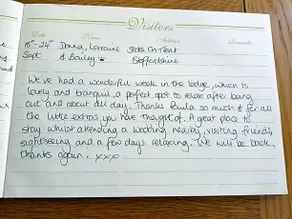 Visitors
Date Name Address Remarks
18th-24th Donna, Lorraine Stoke On Trent
Sept & Bailey Staffordshire
We've had a wonderful week in the lodge, which is
lovely and tranquil, a perfect spot to relax after being
out and about all day. Thanks Paula so much & for all
the little extras you have thought of. A great place to
stay whilst attending a wedding nearby, visiting friends,
sightseeing and a few days relaxing. We will be back,
thanks again. xxx